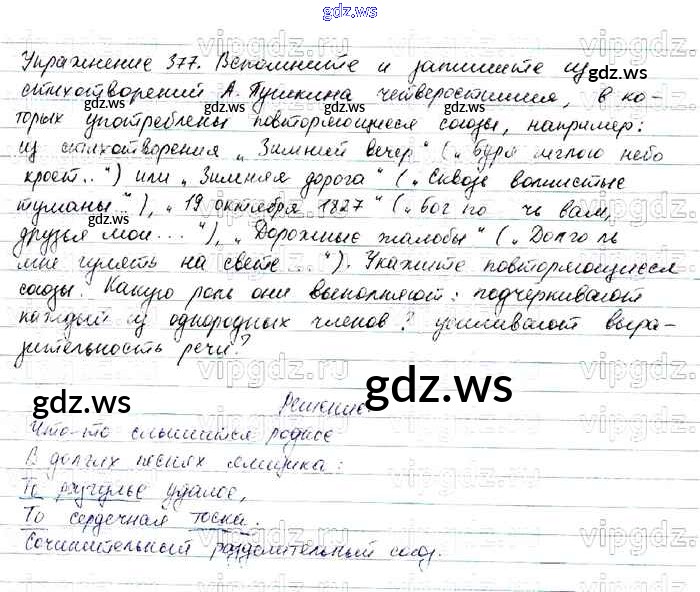 gdz.ws
Упражнение 377. Вспомните и запишите из
стихотворений А. Пушкина четверостишия, в ко-
торых употреблены повторяющиеся союзы, например:
из стихотворения „Зимний вечер" („Буря мглою небо
кроет..") или „Зимняя дорога" („Сквозь волнистые
туманы.."), „19 октября 1827" („Бог по чь вам,
друзья мои..."), „Дорожные жалобы" („Долго ль
мне гулять на свете..."). Укажите повторяющиеся
союзы. Какую роль они выполняют: подчеркивают
каждый из однородных членов? усиливают выра-
зительность речи?
Решение
Что-то слышится родное
В долгих песнях ямщика:
То разгулье удалое,
То сердечная тоска.
Сочинительный разделительный союз.
gdz.ws
gdz.ws
gdz.ws
gdz.ws
gdz.ws
gdz.ws
gdz.ws
gdz.ws
vipgdz.ws